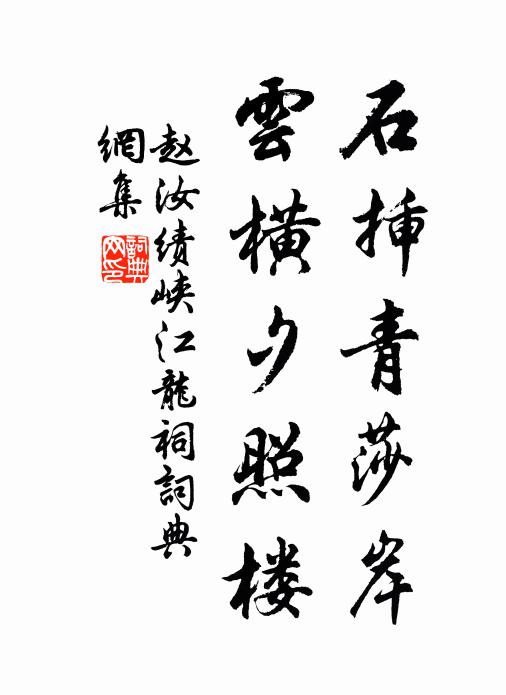 石挿青莎岸
雲横夕照楼
赵汝绩峡江龍祠詞典
網集
詞典
网印